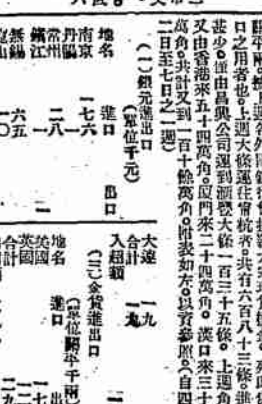 口之用者也。上週大條運往甯杭者。共有六百八十三條。進
甚少。僅由昌興公司運到滙豐大條一百三十五條。上週角
又由香港來五十四萬角。厦門來二十四萬角。漢口來三十
萬角。共計又到一百十餘萬角。附表如左。以資參照。（自四
二日至七日之一週）
（一）銀元進出口
（單位千元）
地名 進口 出口
南京 一七六
丹陽 一
常州 二八
鎮江 一
無錫 六五
一〇
大連 一九
合計 一九
入超額
（二）金貨進出口
（單位關平千兩）
地名 進口 出
美國 一七
英國 一二
合計 二九